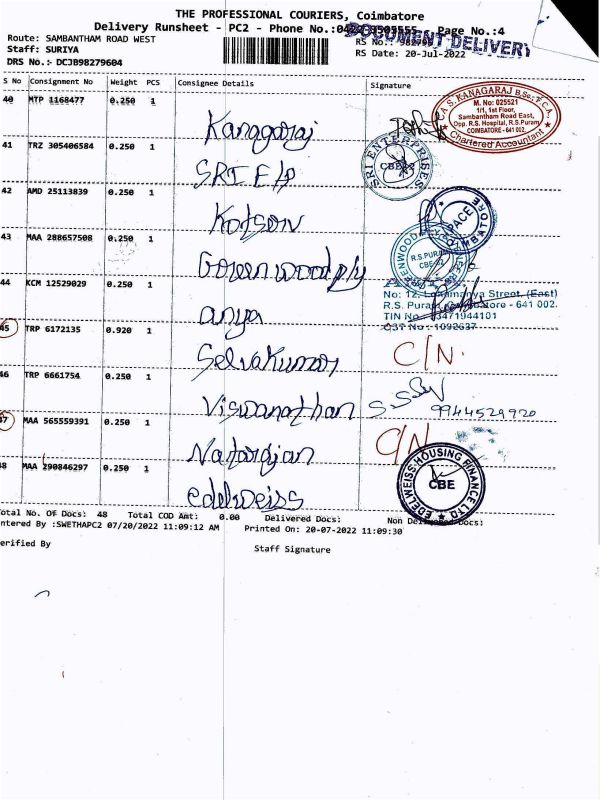 THE PROFESSIONAL COURIERS, Coimbatore
Delivery Runsheet - PC2 - Phone No.:0422 Page No.:4
DOCUMENT DELIVERY
Route: SAMBANTHAM ROAD WEST
RS No.:
Staff: SURIYA
RS Date: 20-Jul-2022
DRS No.:- DCJB98279604
S No Consignment No Weight PCS Consignee Details Signature
40 MTP 1168477 0.250 1
Kanagaraj
A S. KANAGARAJ B.Sc., F.C.A.
M. No: 025521
1/1, 1st Floor,
Sambantham Road East,
Opp. R.S. Hospital, R.S.Puram,
COIMBATORE - 641 002.
Chartered Accountant
41 TRZ 305406584 0.250 1
SRI E/P
SRI ENTERPRISES
CBE
42 AMD 25113839 0.250 1
Kotson
SPACE
COIMBATORE
43 MAA 288657508 0.250 1
Greenwoodply
R.S.PURAM
CBE-02
44 KCM 12529029 0.250 1
anya
No: 12, Lokamanya Street, (East)
R.S. Puram, Coimbatore - 641 002.
TIN No. 33471944101
CST No : 1092637
45 TRP 6172135 0.920 1
Selvakumar
C/N.
46 TRP 6661754 0.250 1
Viswanathan
9944529920
47 MAA 565559391 0.250 1
Natarajan
C/N
48 MAA 290846297 0.250 1
edelweiss
EDELWEISS HOUSING FINANCE LTD
CBE
Total No. OF Docs: 48 Total COD Amt: 0.00 Delivered Docs: Non Delivered Docs:
ntered By :SWETHAPC2 07/20/2022 11:09:12 AM Printed On: 20-07-2022 11:09:30
erified By
Staff Signature